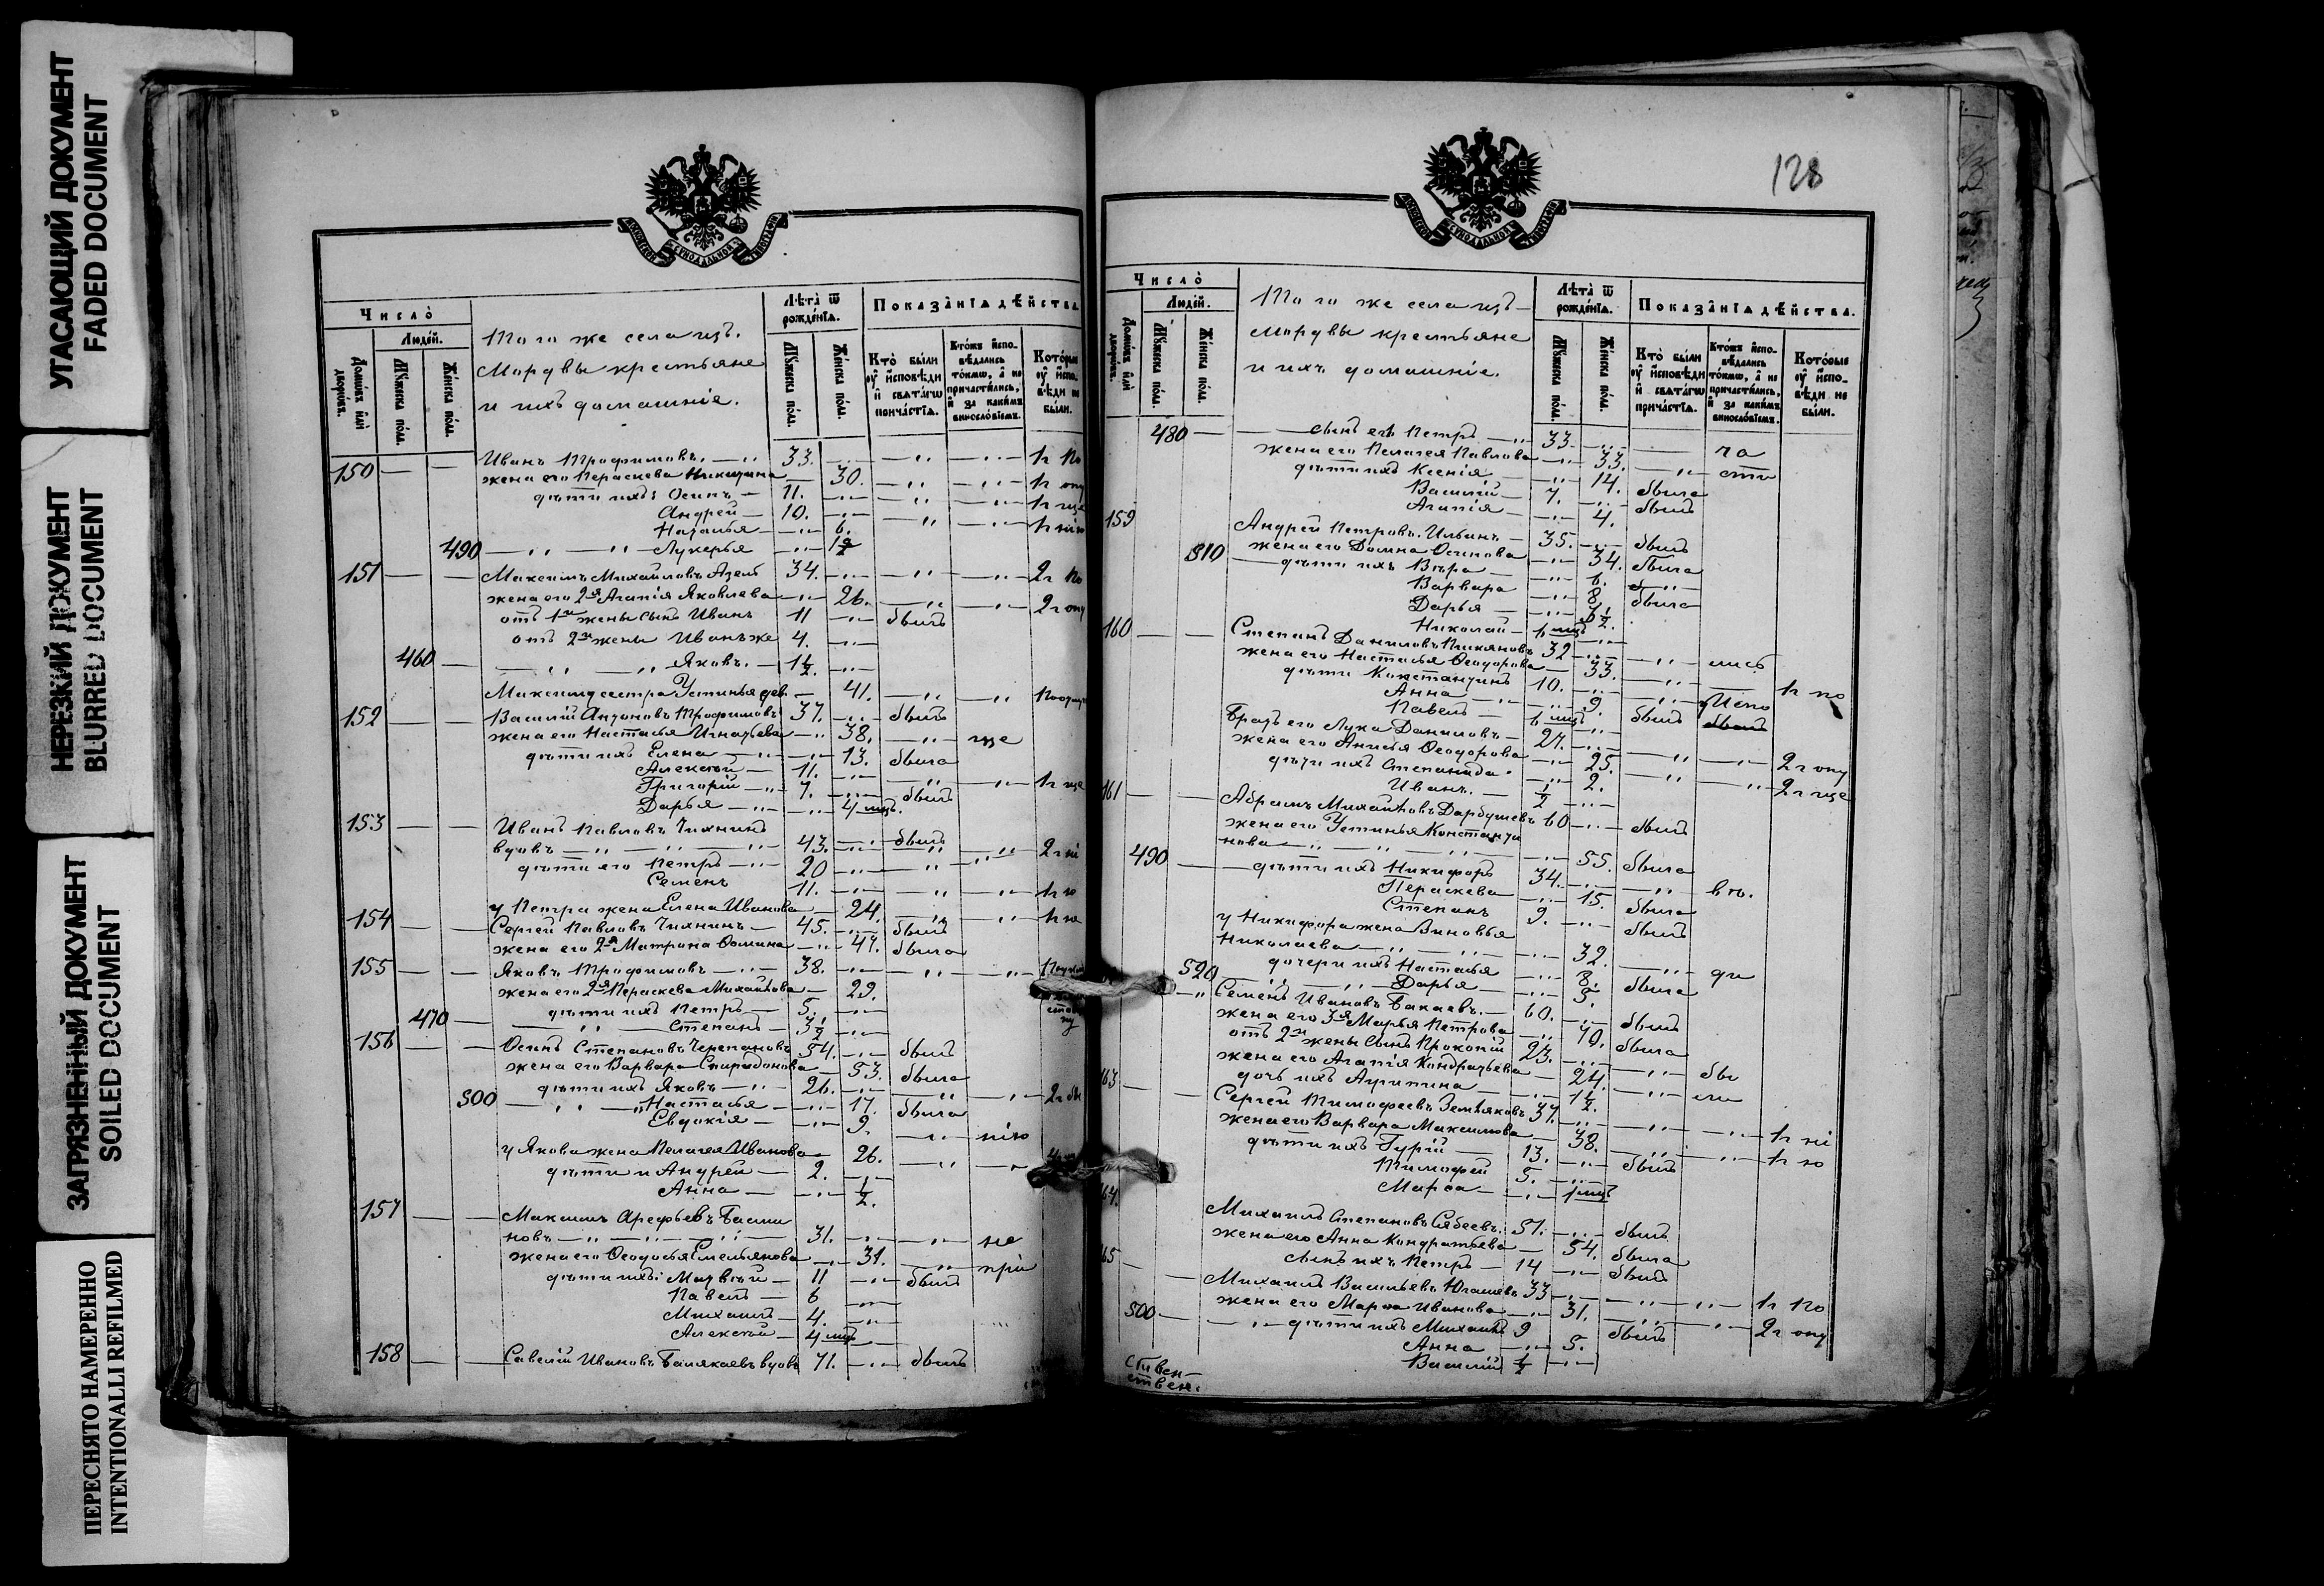 УГАСАЮЩИЙ ДОКУМЕНТ
FADED DOCUMENT
НЕРЕЗКИЙ ДОКУМЕНТ
BLURRED DOCUMENT
ЗАГРЯЗНЕННЫЙ ДОКУМЕНТ
SOILED DOCUMENT
ПЕРЕСНЯТО НАМЕРЕННО
INTENTIONALLI REFILMED
Число
Людей.
Домовъ или дворовъ.
Мужеска полъ.
Женска полъ.
Того же села изъ
Мордвы крестьяне
и ихъ домашніе.
Лѣта ѿ рожденїѧ.
Мужеска полъ.
Женска полъ.
Показанїѧ дѣйства
Кто были у исповѣди и свѧтагѡ причастїѧ.
Ктожъ исповѣдались токмѡ, а не причастились, и за какимъ винословїемъ.
Которые у исповѣди не были.
150 Иванъ Трофимовъ. 33. 1г по
жена его Пераскева Никитина 30. 1г опу
дѣти ихъ: Осипъ 11. 1г ще
Андрей 10. 1г нію
Наталья 6.
490 Лукерья 1/2
151 Максимъ Михайловъ 34. 2г по
жена его 2я Агапія Яковлева 26. 2г опу
отъ 1й жены сынъ Иванъ 11 былъ
отъ 2й жены Иванъ же 4.
460 Яковъ. 1 1/2.
Максима сестра Устинья дев. 41.
152 Василій Антоновъ Трофимовъ 37. былъ
жена его Настасья Игнатьева 38. ще
дѣти ихъ Елена 13. была
Алексѣй 11. 1г ще
Григорій 7. былъ
Дарья 4 мцъ.
153 Иванъ Павловъ Чихнинъ
вдовъ 43. былъ
дѣти его Петръ 20 2г ні
Семенъ 11. 1г ю
у Петра жена Елена Иванова 24. 1г ю
154 Сергей Павловъ Чихнинъ 45. былъ
жена его 2я Матрона Ѳомина 47. была
155 Яковъ Трофимовъ 38.
жена его 2я Пераскева Михайлова 29.
дѣти ихъ Петръ 5.
470 Степанъ 3 1/2
156 Осипъ Степановъ Черепановъ 54. былъ
жена его Варвара Спиридонова 53. была
дѣти ихъ Яковъ 26. 2г бы
500 Настасья 17. была
Евдокія 9. нію
у Якова жена Пелагея Иванова 26.
дѣти и Андрей 2.
Анна 1/2.
157 Максимъ Арефьевъ Басми
новъ 31. не
жена его Ѳеодосья Емельянова 31. при
дѣти ихъ: Матвѣй 11 былъ
Павелъ 6
Михаилъ 4.
Алексѣй 4 мцъ
158 Савелій Ивановъ Балякаевъ вдовъ 71. былъ
128
Число
Людей.
Домовъ или дворовъ.
Мужеска полъ.
Женска полъ.
Того же села изъ
Мордвы крестьяне
и ихъ домашніе.
Лѣта ѿ рожденїѧ.
Мужеска полъ.
Женска полъ.
Показанїѧ дѣйства.
Кто были у исповѣди и свѧтагѡ причастїѧ.
Ктожъ исповѣдались токмѡ, а не причастились, и за какимъ винословїемъ.
Которые у исповѣди не были.
480 сынъ его Петръ 33. ча
жена его Пелагея Павлова 33. сти
дѣти ихъ Ксенія 14. была
Василій 7. былъ
Агапія 4.
159 Андрей Петровъ Ильинъ 35. былъ
жена его Домна Осипова 34. была
510 дѣти ихъ Вѣра
Варвара 8. была
Дарья 3 1/2.
Николай 6 мцъ
160 Степанъ Даниловъ 32 лись
жена его Настасья Ѳеодорова 33. 1г по
дѣти Константинъ 10. Испо
Анна 9. былъ
Павелъ 6 мцъ
Братъ его Лука Даниловъ 27. 2г опу
жена его Анисья Ѳеодорова 25. 2г ще
дѣти ихъ Степанида 2.
Иванъ. 1/2
161 Абрамъ Михайловъ Дарбушевъ 60 былъ
жена его Устинья Константи
нова 55. была
490 дѣти ихъ Никифоръ 34. вѣ.
Пераскева 15. была
Степанъ 9. былъ
у Никифора жена Зиновья
Николаева 32. ди
дочери ихъ Настасья 8. была
520 Дарья 3.
Семенъ Ивановъ Бакаевъ. 60. былъ
жена его 3я Марья Петрова 70. была
отъ 2й жены сынъ Прокопій 23. бы
жена его Агапія Кондратьева 24. ли
дочь ихъ Агрипина 1 1/2.
163 Сергей Тимофеевъ Земляковъ 37. 1г ні
жена его Варвара Максимова 38. 1г ю
дѣти ихъ Гурій 13. былъ
Тимофей 5.
Марѳа 1 мцъ
164. Михаилъ Степановъ Сябеевъ. 51. былъ
жена его Анна Кондратьева 54. была
сынъ ихъ Петръ 14 былъ
165 Михаилъ Васильевъ Югашевъ 33 1г по
жена его Марѳа Иванова 31. 2г опу
500 дѣти ихъ Михаилъ 9 былъ
Анна 5.
Василій 1/2